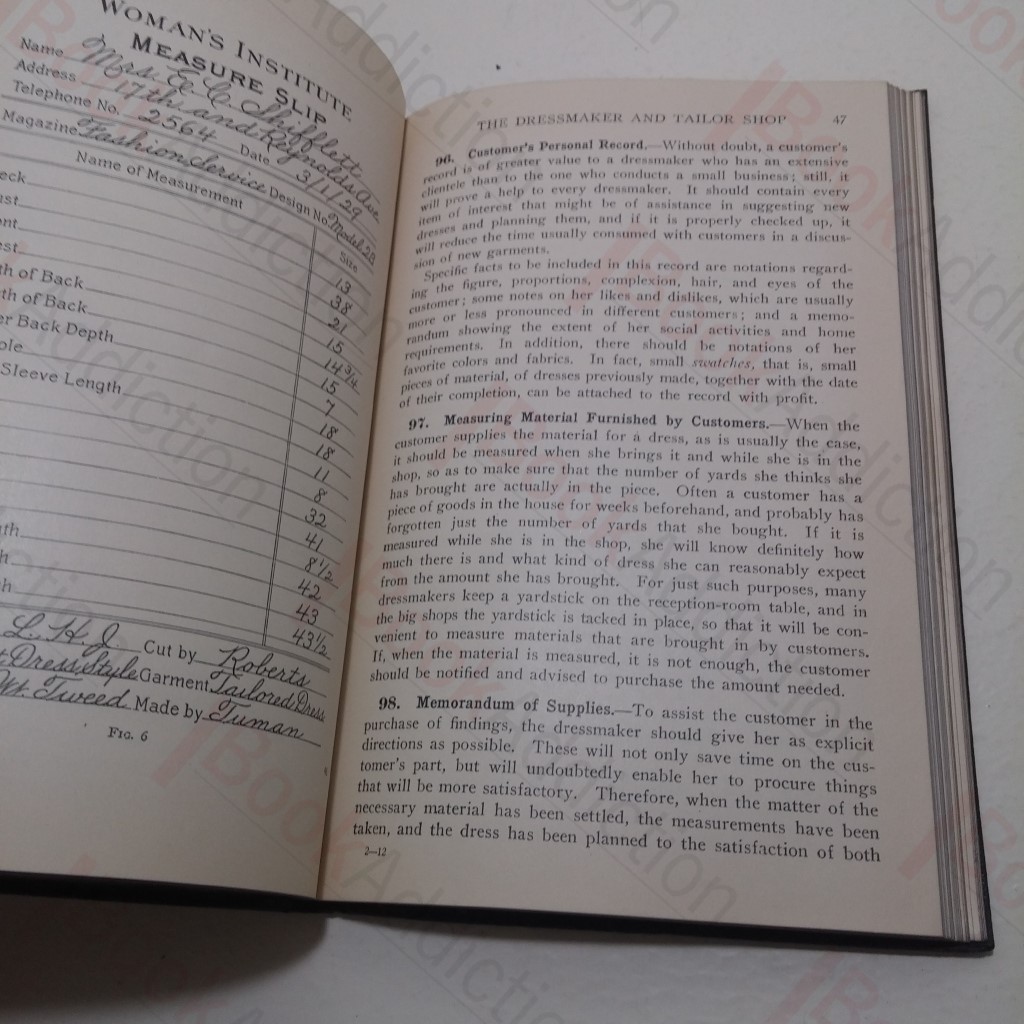 WOMAN'S INSTITUTE
MEASURE SLIP
Name Mrs. E. C. Shifflett
Address 17th and Reynolds Ave
Telephone No. 2564 Date 3/1/29
Magazine Fashion Service Design No. Model 2B
Name of Measurement Size
eck 13
ust 38
ont 21
est 15
th of Back 14 3/4
gth of Back 15
er Back Depth 7
ole 18
Sleeve Length 18
11
8
32
41
8 1/2
42
th 43
h 43 1/2
h
L. H. J. Cut by Roberts
Dress Style Garment Tailored Dress
Wt. Tweed Made by Tuman
FIG. 6
THE DRESSMAKER AND TAILOR SHOP 47
96. Customer's Personal Record.—Without doubt, a customer's
record is of greater value to a dressmaker who has an extensive
clientele than to the one who conducts a small business; still, it
will prove a help to every dressmaker. It should contain every
item of interest that might be of assistance in suggesting new
dresses and planning them, and if it is properly checked up, it
will reduce the time usually consumed with customers in a discus-
sion of new garments.
Specific facts to be included in this record are notations regard-
ing the figure, proportions, complexion, hair, and eyes of the
customer; some notes on her likes and dislikes, which are usually
more or less pronounced in different customers; and a memo-
randum showing the extent of her social activities and home
requirements. In addition, there should be notations of her
favorite colors and fabrics. In fact, small swatches, that is, small
pieces of material, of dresses previously made, together with the date
of their completion, can be attached to the record with profit.
97. Measuring Material Furnished by Customers.—When the
customer supplies the material for a dress, as is usually the case,
it should be measured when she brings it and while she is in the
shop, so as to make sure that the number of yards she thinks she
has brought are actually in the piece. Often a customer has a
piece of goods in the house for weeks beforehand, and probably has
forgotten just the number of yards that she bought. If it is
measured while she is in the shop, she will know definitely how
much there is and what kind of dress she can reasonably expect
from the amount she has brought. For just such purposes, many
dressmakers keep a yardstick on the reception-room table, and in
the big shops the yardstick is tacked in place, so that it will be con-
venient to measure materials that are brought in by customers.
If, when the material is measured, it is not enough, the customer
should be notified and advised to purchase the amount needed.
98. Memorandum of Supplies.—To assist the customer in the
purchase of findings, the dressmaker should give her as explicit
directions as possible. These will not only save time on the cus-
tomer's part, but will undoubtedly enable her to procure things
that will be more satisfactory. Therefore, when the matter of the
necessary material has been settled, the measurements have been
taken, and the dress has been planned to the satisfaction of both
2—12